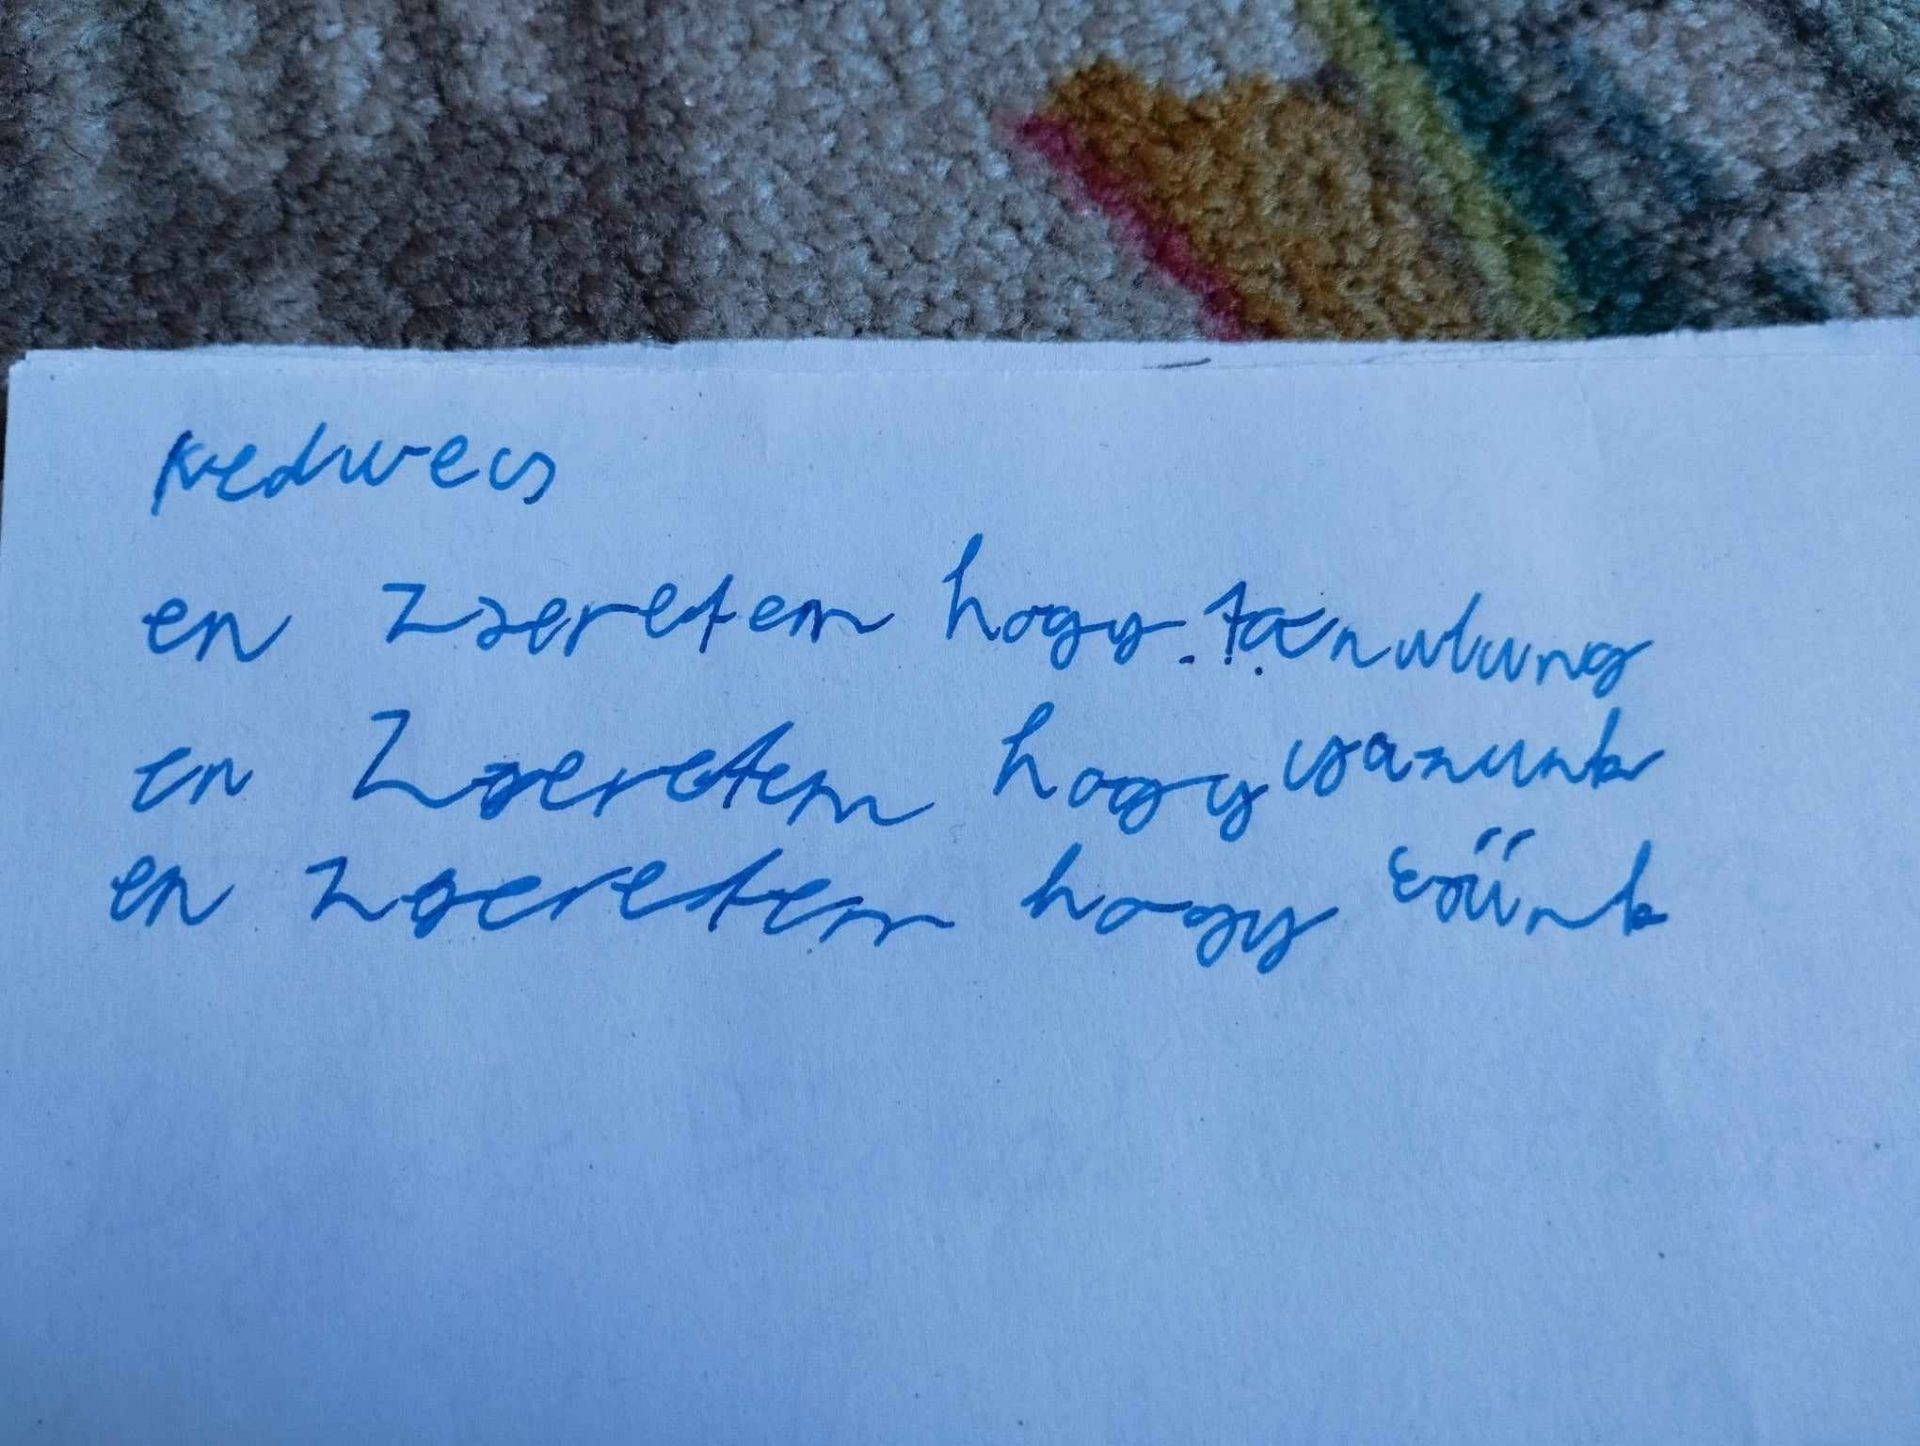 kedwes
en Zseretem hogy tanulung
en Zseretem hogy usazunk
en Zseretem hogy esünk